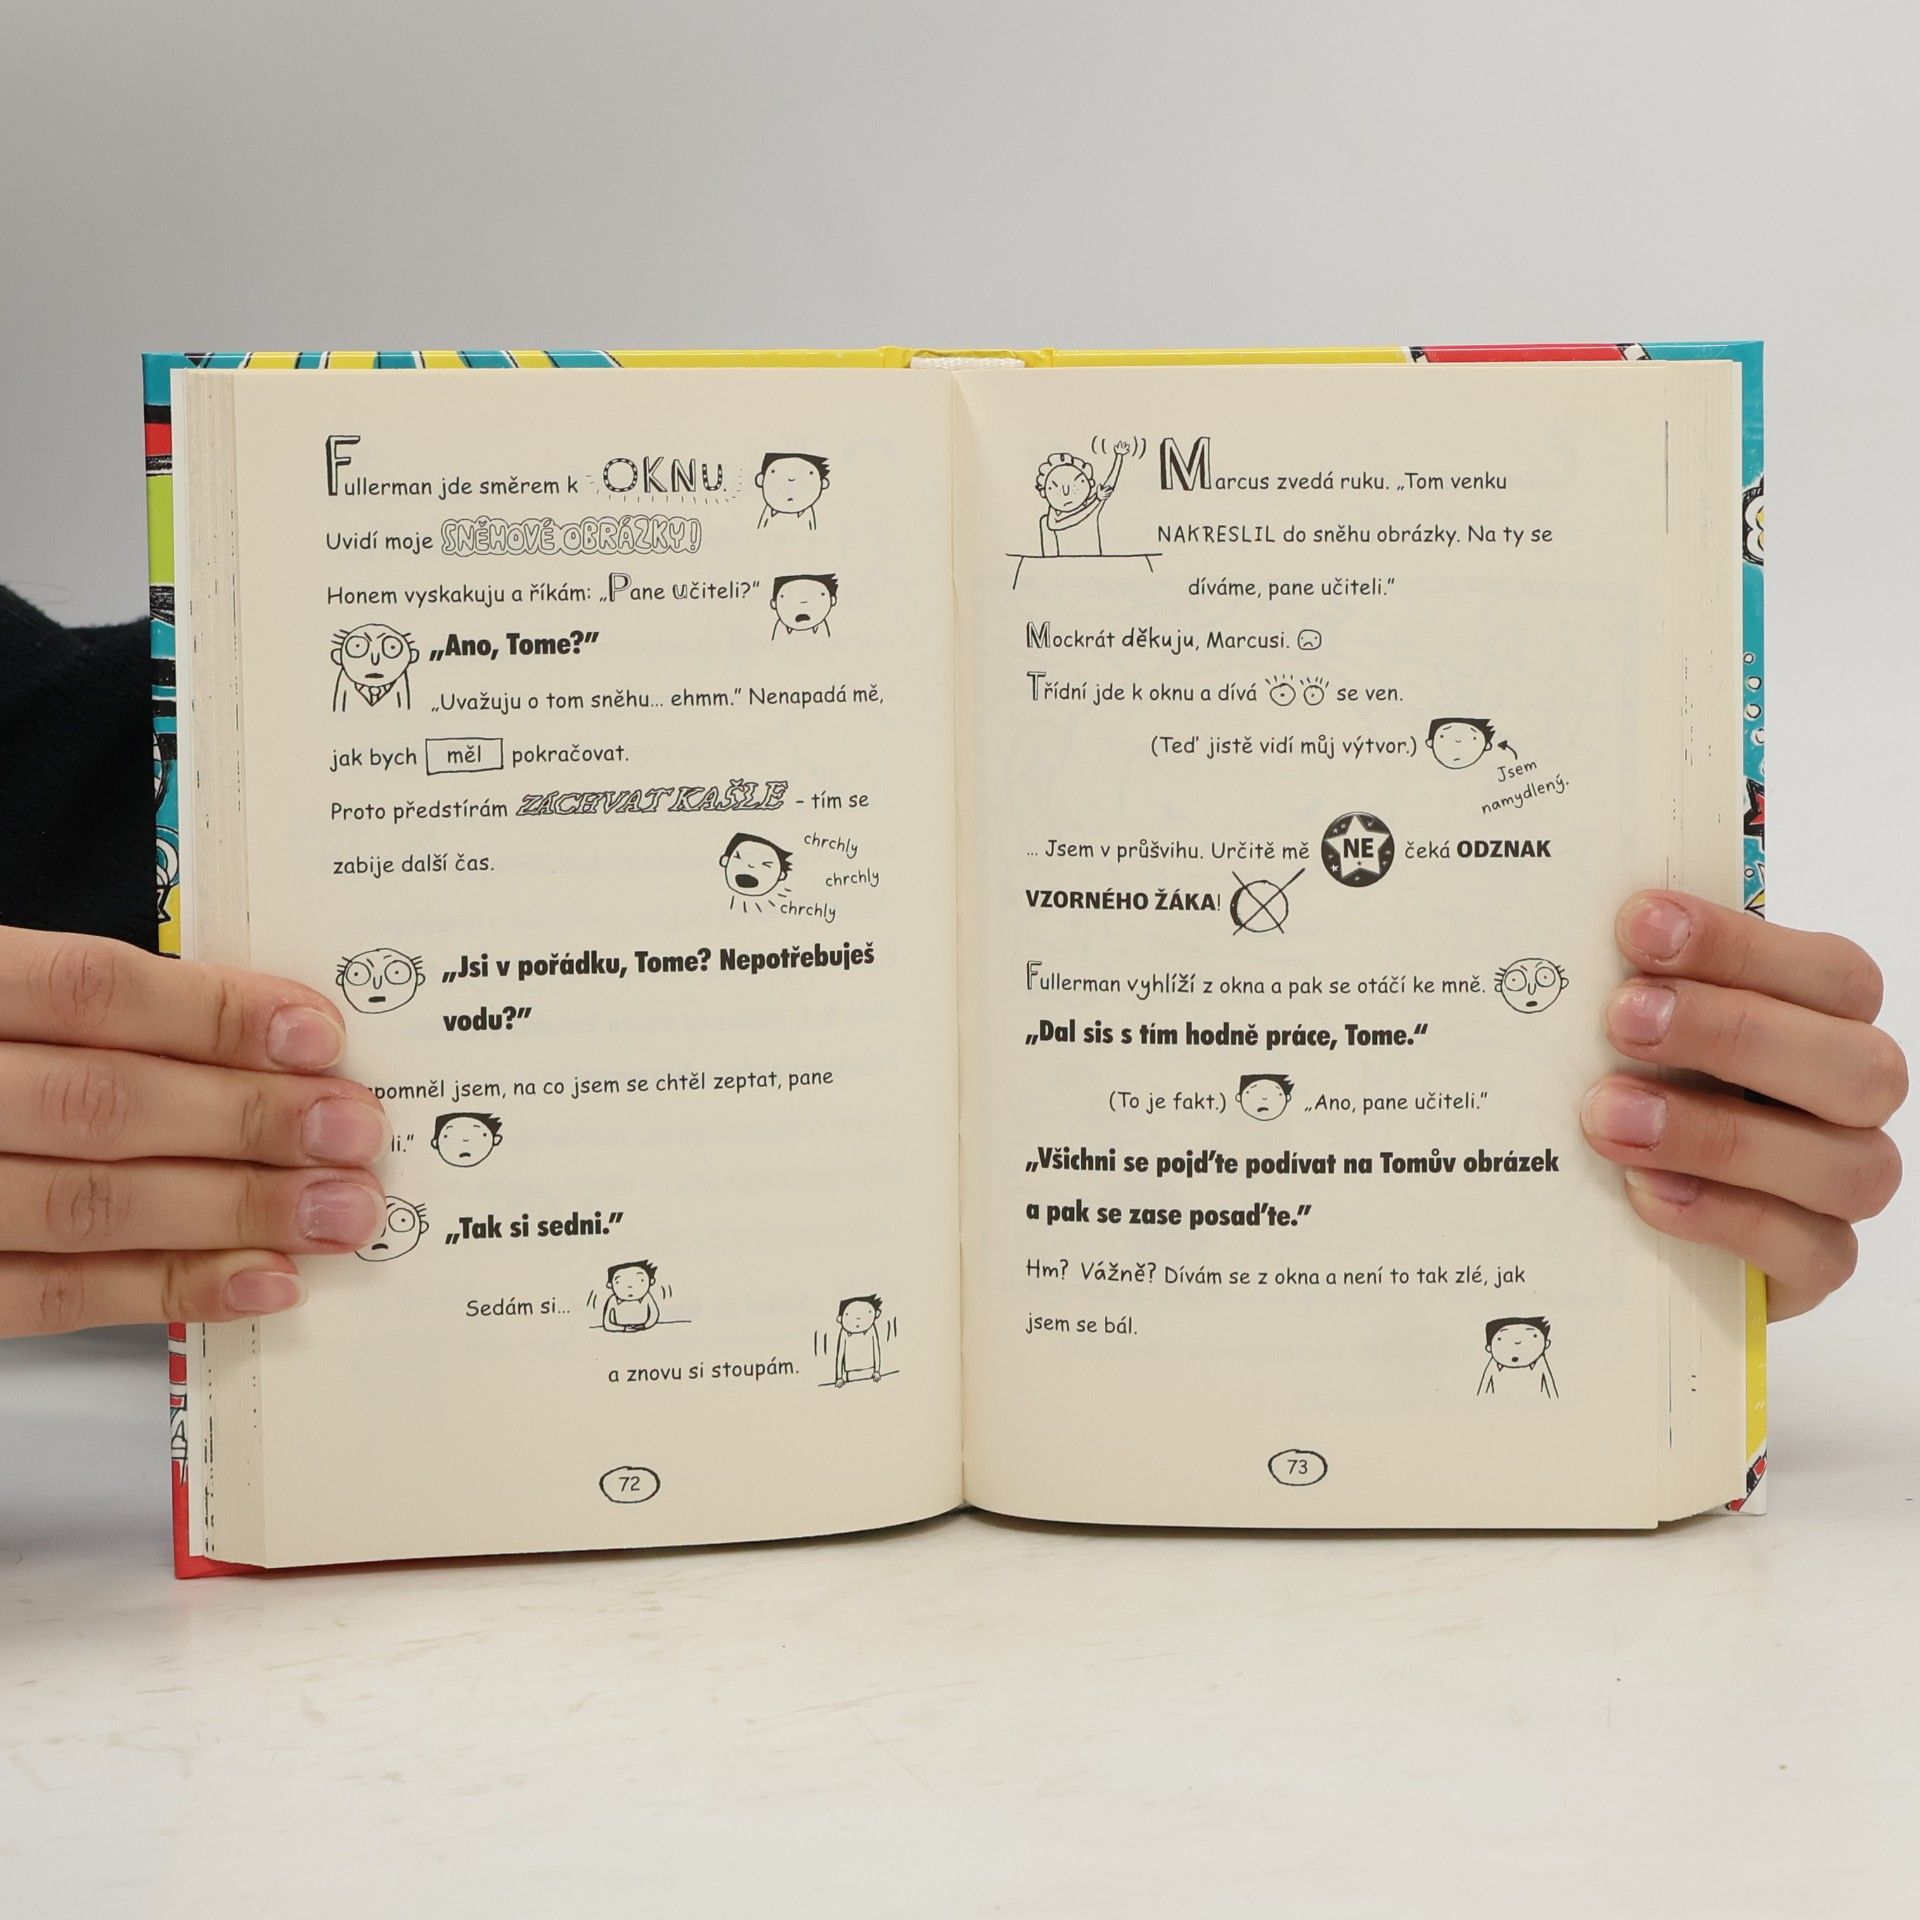 Fullerman jde směrem k OKNU.
Uvidí moje SNĚHOVÉ OBRÁZKY!
Honem vyskakuju a říkám: „Pane učiteli?“
„Ano, Tome?“
„Uvažuju o tom sněhu... ehmm.“ Nenapadá mě,
jak bych měl pokračovat.
Proto předstírám ZÁCHVAT KAŠLE – tím se
zabije další čas.
chrchly
chrchly
chrchly
„Jsi v pořádku, Tome? Nepotřebuješ
vodu?“
jsem, na co jsem se chtěl zeptat, pane
„Tak si sedni.“
Sedám si...
a znovu si stoupám.
72
Marcus zvedá ruku. „Tom venku
NAKRESLIL do sněhu obrázky. Na ty se
díváme, pane učiteli.“
Mockrát děkuju, Marcusi.
Třídní jde k oknu a dívá se ven.
(Teď jistě vidí můj výtvor.)
Jsem
namydlený.
... Jsem v průšvihu. Určitě mě NE čeká ODZNAK
VZORNÉHO ŽÁKA!
Fullerman vyhlíží z okna a pak se otáčí ke mně.
„Dal sis s tím hodně práce, Tome.“
(To je fakt.) „Ano, pane učiteli.“
„Všichni se pojďte podívat na Tomův obrázek
a pak se zase posaďte.“
Hm? Vážně? Dívám se z okna a není to tak zlé, jak
jsem se bál.
73